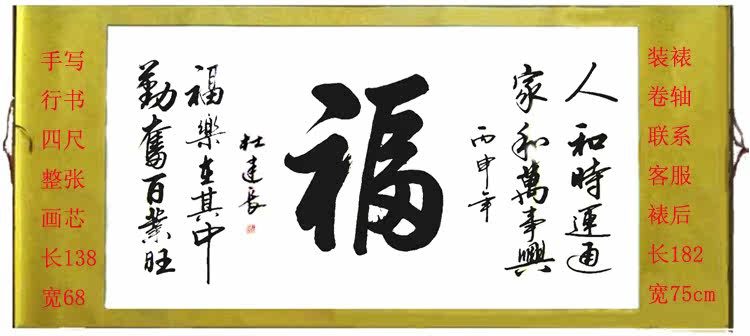 手写
行书
四尺
整张
画芯
长138
宽68
人和時運通
家和萬事興
丙申年
福
杜建长
福樂在其中
勤奮百業旺
装裱
卷轴
联系
客服
裱后
长182
宽75cm